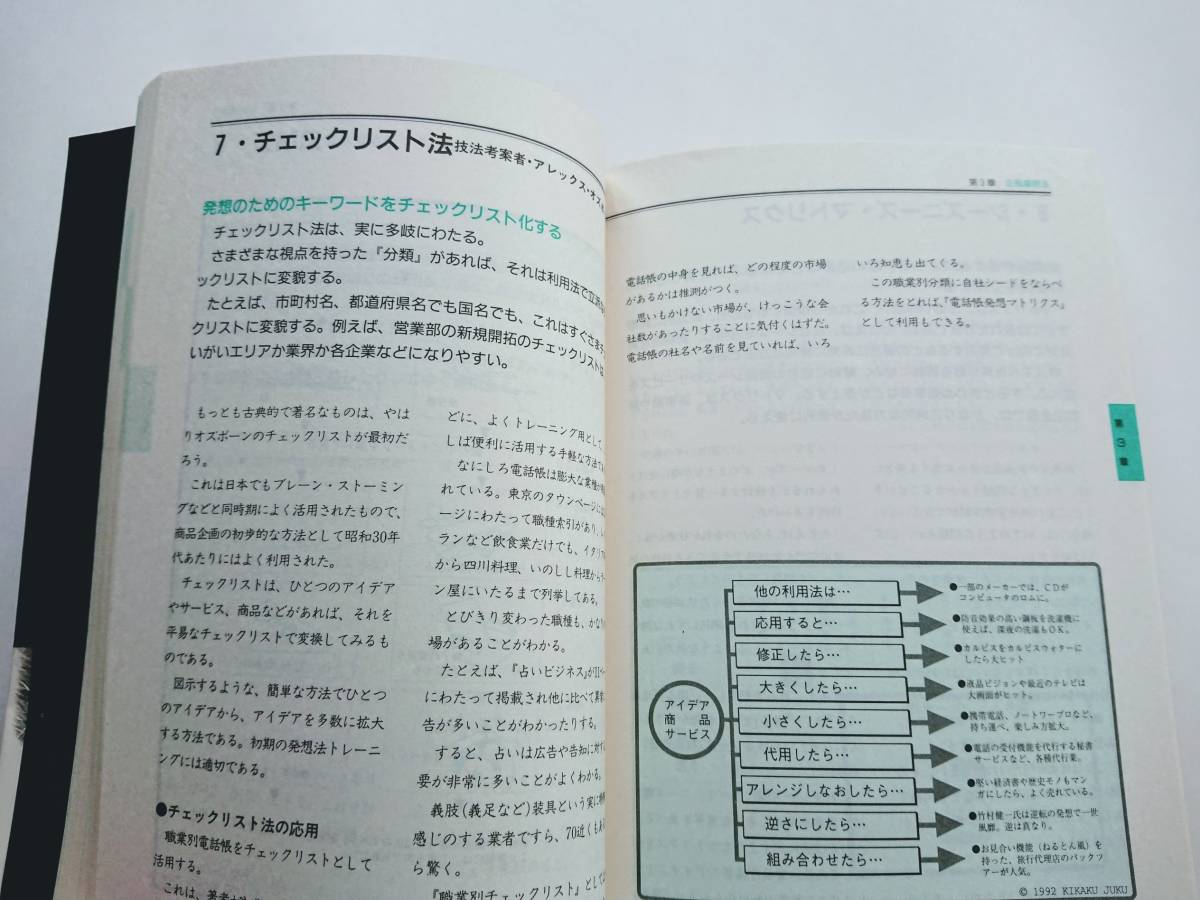 7・チェックリスト法 技法考案者・アレックス・オズ
発想のためのキーワードをチェックリスト化する
チェックリスト法は、実に多岐にわたる。
さまざまな視点を持った『分類』があれば、それは利用法で立派
ックリストに変貌する。
たとえば、市町村名、都道府県名でも国名でも、これはすぐさま
クリストに変貌する。例えば、営業部の新規開拓のチェックリストは
いがいエリアか業界か各企業などになりやすい。
もっとも古典的で著名なものは、やは
りオズボーンのチェックリストが最初だ
ろう。
これは日本でもブレーン・ストーミン
グなどと同時期によく活用されたもので、
商品企画の初歩的な方法として昭和30年
代あたりにはよく利用された。
チェックリストは、ひとつのアイデア
やサービス、商品などがあれば、それを
平易なチェックリストで変換してみるも
のである。
図示するような、簡単な方法でひとつ
のアイデアから、アイデアを多数に拡大
する方法である。初期の発想法トレーニ
ングには適切である。
●チェックリスト法の応用
職業別電話帳をチェックリストとして
活用する。
これは、著者が
どに、よくトレーニング用として、
しば便利に活用する手軽な方法で
なにしろ電話帳は膨大な業種が
れている。東京のタウンページに
ージにわたって職種索引があり、
ランなど飲食業だけでも、イタリア
から四川料理、いのしし料理から
ン屋にいたるまで列挙してある。
とびきり変わった職種も、かなり
場があることがわかる。
たとえば、『占いビジネス』が11ペ
にわたって掲載され他に比べて異常
告が多いことがわかったりする。
すると、占いは広告や告知に対
要が非常に多いことがよくわかる。
義肢(義足など)装具という実に
感じのする業者ですら、70近く(も
ら驚く。
『職業別チェックリスト』として
第3章
電話帳の中身を見れば、どの程度の市場
があるかは推測がつく。
思いもかけない市場が、けっこうな会
社数があったりすることに気付くはずだ。
電話帳の社名や名前を見ていれば、いろ
いろ知恵も出てくる。
この職業別分類に自社シードをならべ
る方法をとれば、『電話帳発想マトリクス』
として利用もできる。
第3章
アイデア
商品
サービス
他の利用法は…
●一部のメーカーでは、CDが
コンピュータのロムに。
応用すると…
●防音効果の高い鋼板を洗濯機に
使えば、深夜の洗濯もOK。
修正したら…
●カルピスをカルピスウォターに
したら大ヒット
大きくしたら…
●液晶ビジョンや最近のテレビは
大画面がヒット。
小さくしたら…
●携帯電話、ノートワープロなど、
持ち運べ、楽しみ方拡大。
代用したら…
●電話の受付機能を代行する秘書
サービスなど、各種代行業。
アレンジしなおしたら…
●堅い経済書や歴史モノもマン
ガにしたら、よく売れている。
逆さにしたら…
●竹村健一氏は逆転の発想で一世
風靡。逆は真なり。
組み合わせたら…
●お見合い機能(ねるとん風)を
持った、旅行代理店のパックツ
アーが人気。
© 1992 KIKAKU JUKU